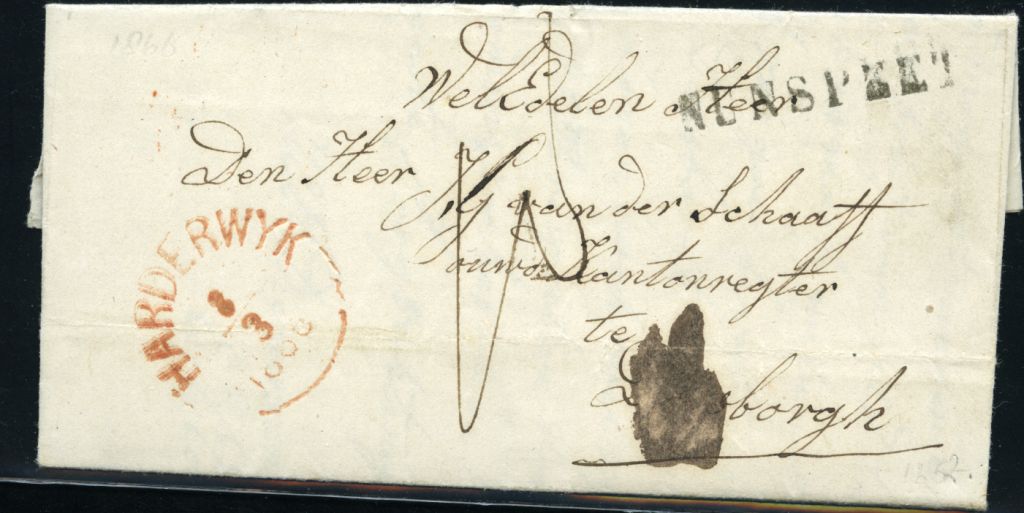 1866
WelEdelen Heer
NUNSPEET
Den Heer J, G van der Schaaff
Kantonregter
te
borgh
HARDERWYK
8/3
1866